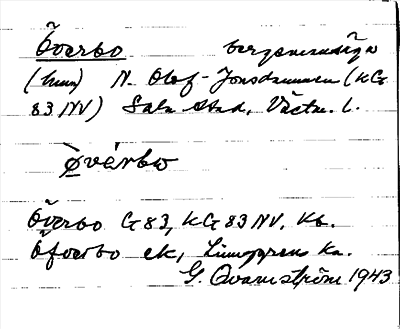 Överbo bergsmansäga
(hmn) N. Olof-Jonsdammen (KG
83 NV) Sala stad, Västm. l.
Òvérbo
Överbo G 83, KG 83 NV. Kb.
Öfverbo ek, Linnegrens ka.
G. Qvarnström 1943